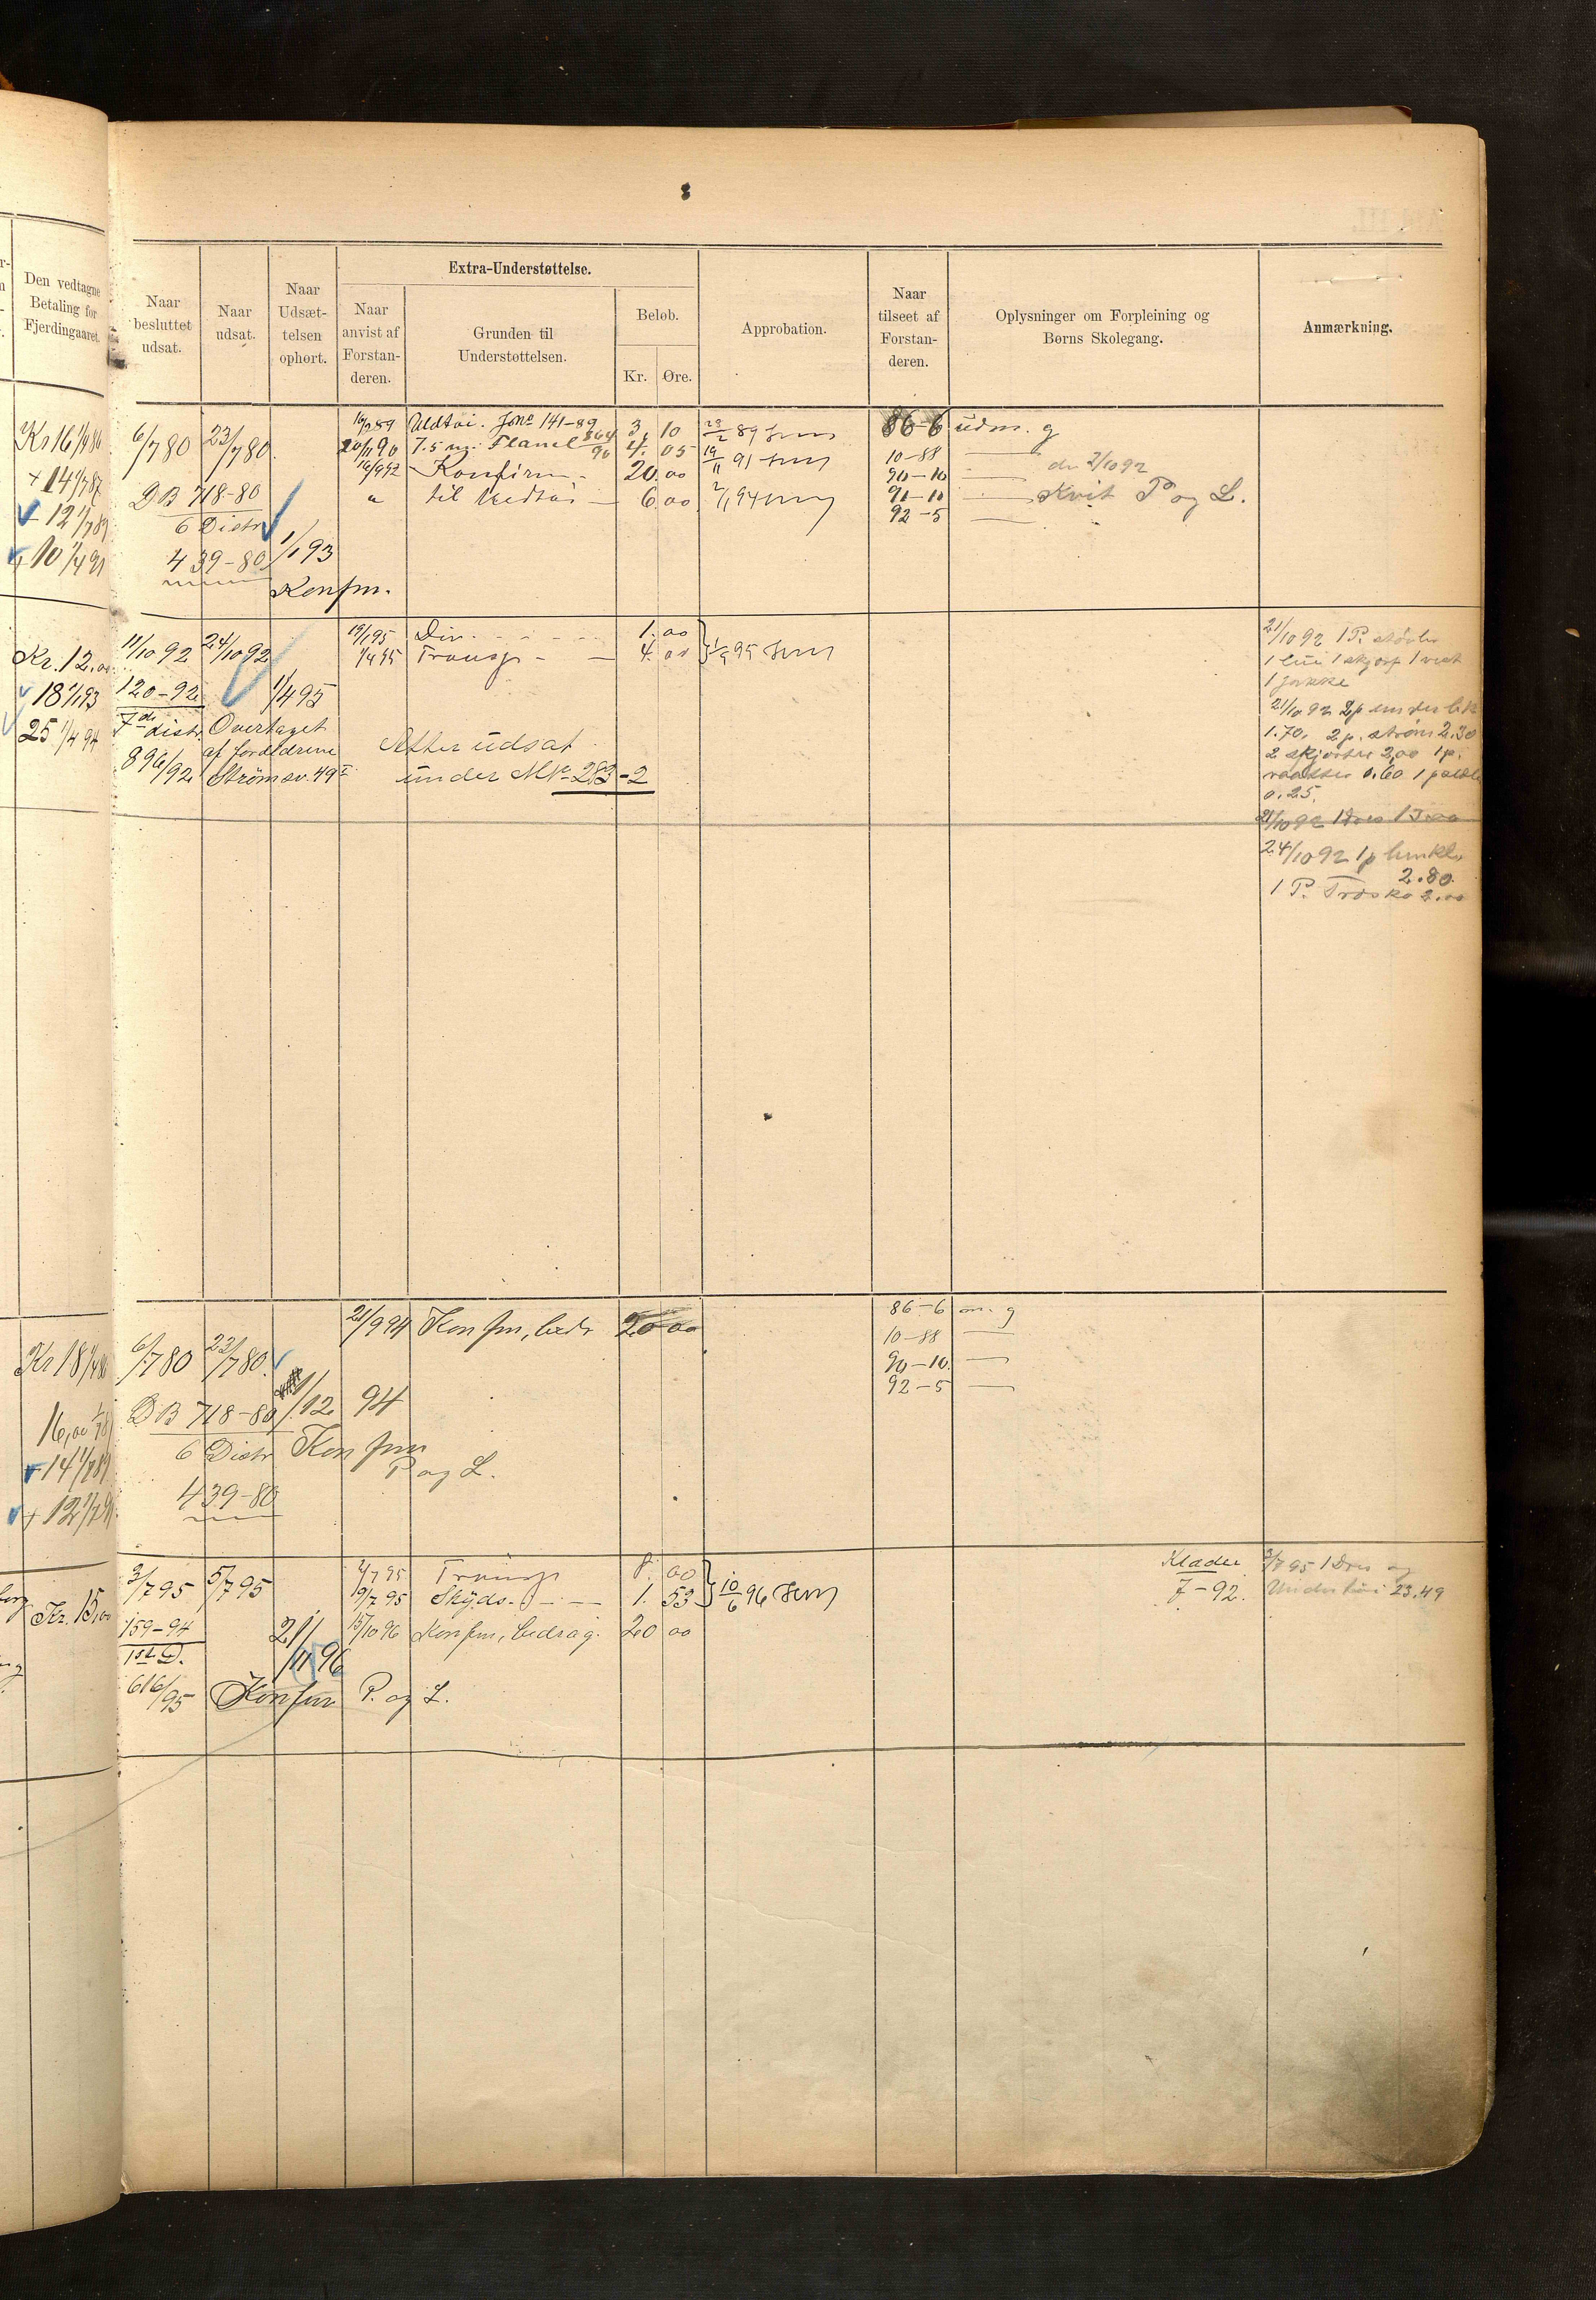 Den vedtagne
Betaling for
Fjerdingaaret.
Naar
besluttet
udsat.
Naar
udsat.
Naar
Udsæt-
telsen
ophørt.
Extra-Understøttelse.
Naar
anvist af
Forstan-
deren.
Grunden til
Understøttelsen.
Beløb.
Kr. Øre.
Approbation.
Naar
tilseet af
Forstan-
deren.
Oplysninger om Forpleining og
Børns Skolegang.
Anmærkning.
Kr 16 1/4 86
+ 14 1/7 87
12 1/7 89
10 1/4 91
6/7 80 23/7 80.
DB 718-80
6 Distr
439-80
1/1 93
Konfm.
16/2 89 Uldtøi. Jno 141-89 3. 10
20/11 90 7.5 m. Flanel 864/90 4. 05
16/9 92 Konfirm - 20. 00
" til 6. 00
23/2 89
19/11 91
2/1 94
86-6 udm. g
10-88
90-10
91-10
92-5
de 2/10 92
Kvit P og L.
Kr. 12.00
18 1/1 93
25 1/4 94
11/10 92 24/10 92
120-92
7de distr.
896/92
1/4 95
Overtaget
af forældrene
Strømsv. 49 I
19/1 95 Div. - - - 1. 00
1/4 95 Transp - - 4. 00
1/9 95
Atter udsat
under No 283-2
21/10 92 1 P. støvler
1 lue 1 skjorf 1 vest
1 jakke
21/10 92 2 p underbk
1.70, 2 p. strøm 2.30
2 skjorter 2,00 1 p.
vaatter 0.60 1 p
0.25.
21/10 92
24/10 92 1 p
2.80.
1 P. Træsko 2.00
Kr 18 1/4 86
16,00
14 1/7 89
+ 12 1/7 91
6/7 80 23/7 80.
DB 718-80
6 Distr
439-80
1/12 94
Konfm
P og L.
21/9 94 Konfm, bedr 20 00
86-6 m. g
10-88
90-10.
92-5
Kr. 15,00
3/7 95 5/7 95
159-94
1ste D.
616/95
21/11 96
Konfm P. og L.
2/7 95 Transp 8. 00
19/7 95 Skyds. - - 1. 53
15/10 96 Konfm, bedrag. 20 00
10/6 96
Klæder
7-92.
3/7 95 1 Dres og
Undertøi 23.49